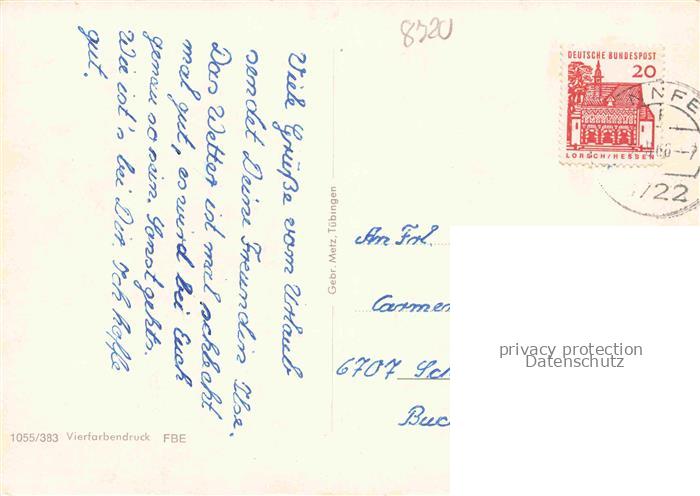 8520
DEUTSCHE BUNDESPOST
20
LORSCH/HESSEN
NNFE
66-7
722
Viele Grüße vom Urlaub
sendet Deine Freundin Ilse.
Das Wetter ist mal schlecht
mal gut, es wird bei Euch
genau so sein. Sonst gehts.
Wie ist's bei Dir. Ich hoffe
gut.
Gebr. Metz, Tübingen
An Frl.
Carmen
6707 Sc
Buc
privacy protection
Datenschutz
1055/383 Vierfarbendruck FBE